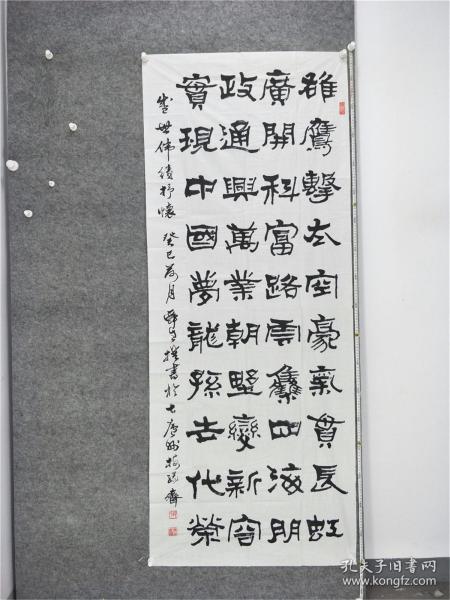 雄鷹擊太空豪氣貫長虹
廣開科富路雲集四海朋
政通興萬業朝野變新容
實現中國夢龍孫代榮
盛世偉績抒懷 癸巳月撰書於唐州梅齋
孔夫子旧书网
www.kongfz.com